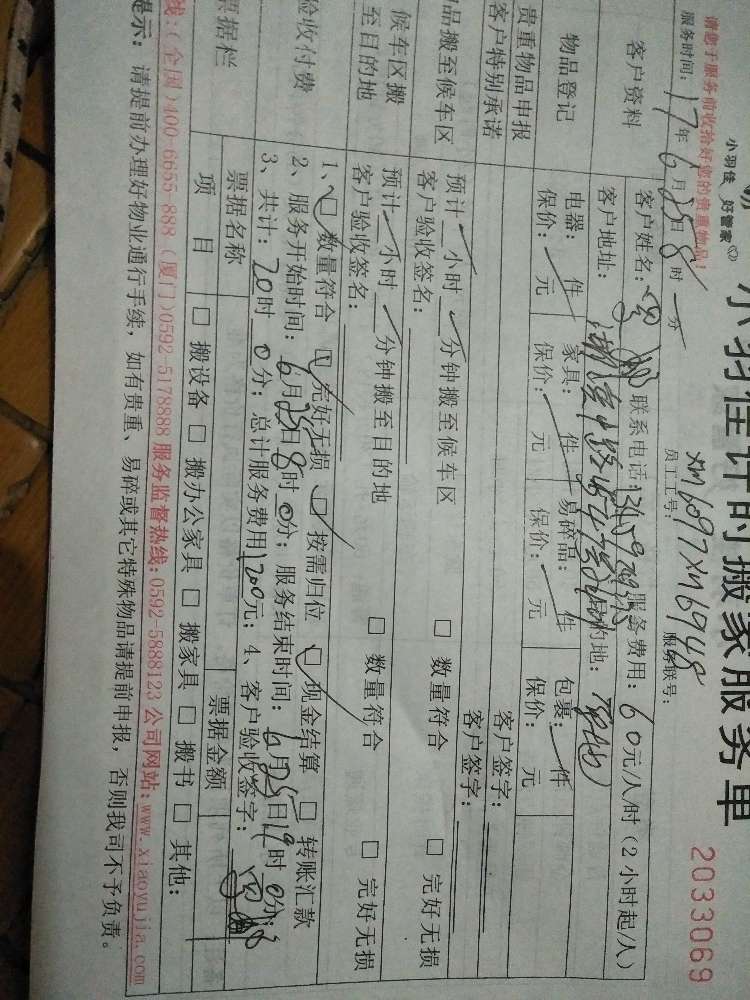 小羽佳 好管家
小羽佳计时搬家服务单
2033069
请您于服务前收拾好您的贵重物品!
员工工号: XM6097 XM6948
服务联号:
服务时间: 17年6月25日8时 分
客户资料
客户姓名: 联系电话: 服务费用: 60元/人/时(2小时起/人)
客户地址: 目的地:
物品登记
电器: 件 家具: 件 易碎品: 件 包裹: 件
保价: 元 保价: 元 保价: 元 保价: 元
贵重物品申报 客户签字:
客户特别承诺 客户签字:
品搬至候车区
预计 小时 分钟搬至候车区 □ 数量符合 □ 完好无损
客户验收签名:
候车区搬
至目的地
预计 小时 分钟搬至目的地 □ 数量符合 □ 完好无损
客户验收签名:
验收付费
1、□ 数量符合 □ 完好无损 □ 按需归位 □ 现金结算 □ 转账汇款
2、服务开始时间: 6月25日8时0分; 服务结束时间: 6月25日 时0分;
3、共计: 20时0分; 总计服务费用1200元; 4、客户验收签字:
票据栏
票据名称 票据金额
项 目 □ 搬设备 □ 搬办公家具 □ 搬家具 □ 搬书 □ 其他:
线:(全国)400-6655-888 (厦门)0592-5178888 服务监督热线:0592-5888123 公司网站:www.xiaoyujia.com
提示: 请提前办理好物业通行手续, 如有贵重、易碎或其它特殊物品请提前申报, 否则我司不予负责。